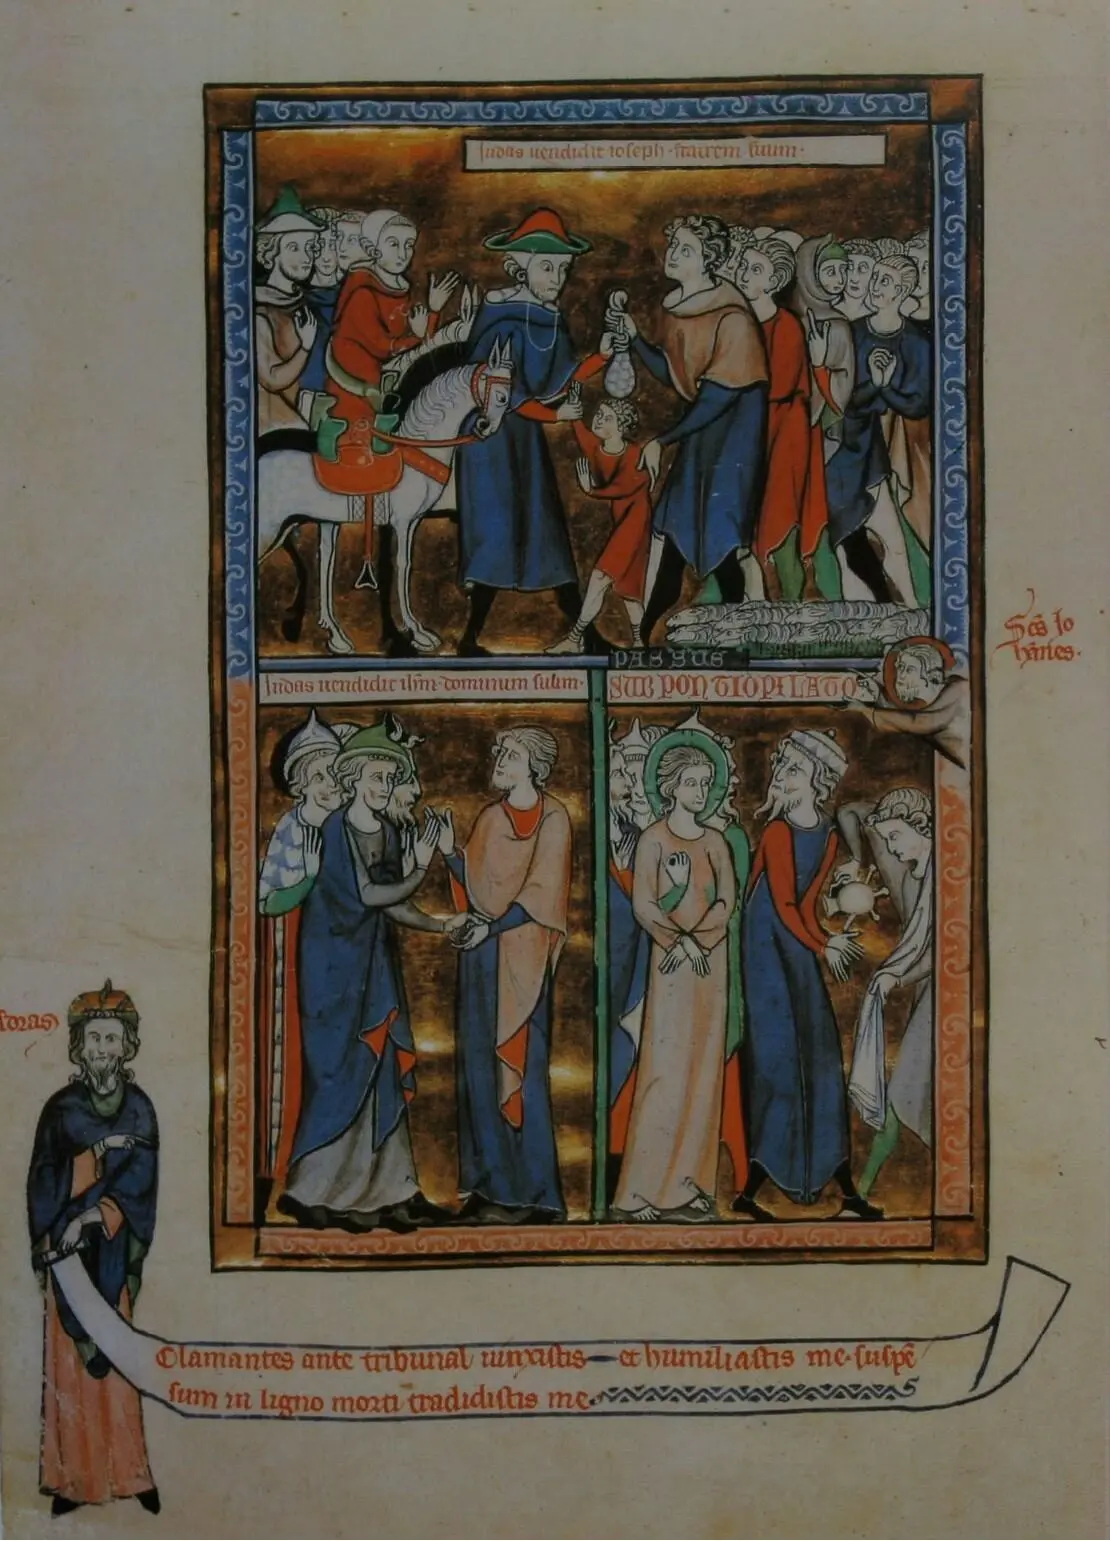 Judas uendidit ioseph fratrem suum.
PASSUS
Judas uendidit ihm dominum suum.
SUB PONTIO PILATO
Scs Jo
hanes.
foras
Clamantes ante tribunal iunxistis et humiliastis me. suspe
sum in ligno morti tradidistis me.